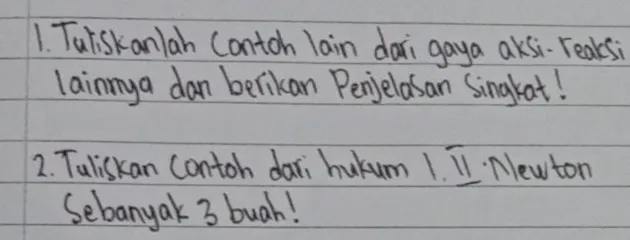 1. Tuliskanlah Contoh lain dari gaya aksi-reaksi
lainnya dan berikan Penjelasan Singkat!
2. Tuliskan Contoh dari hukum 1. II. Newton
Sebanyak 3 buah!